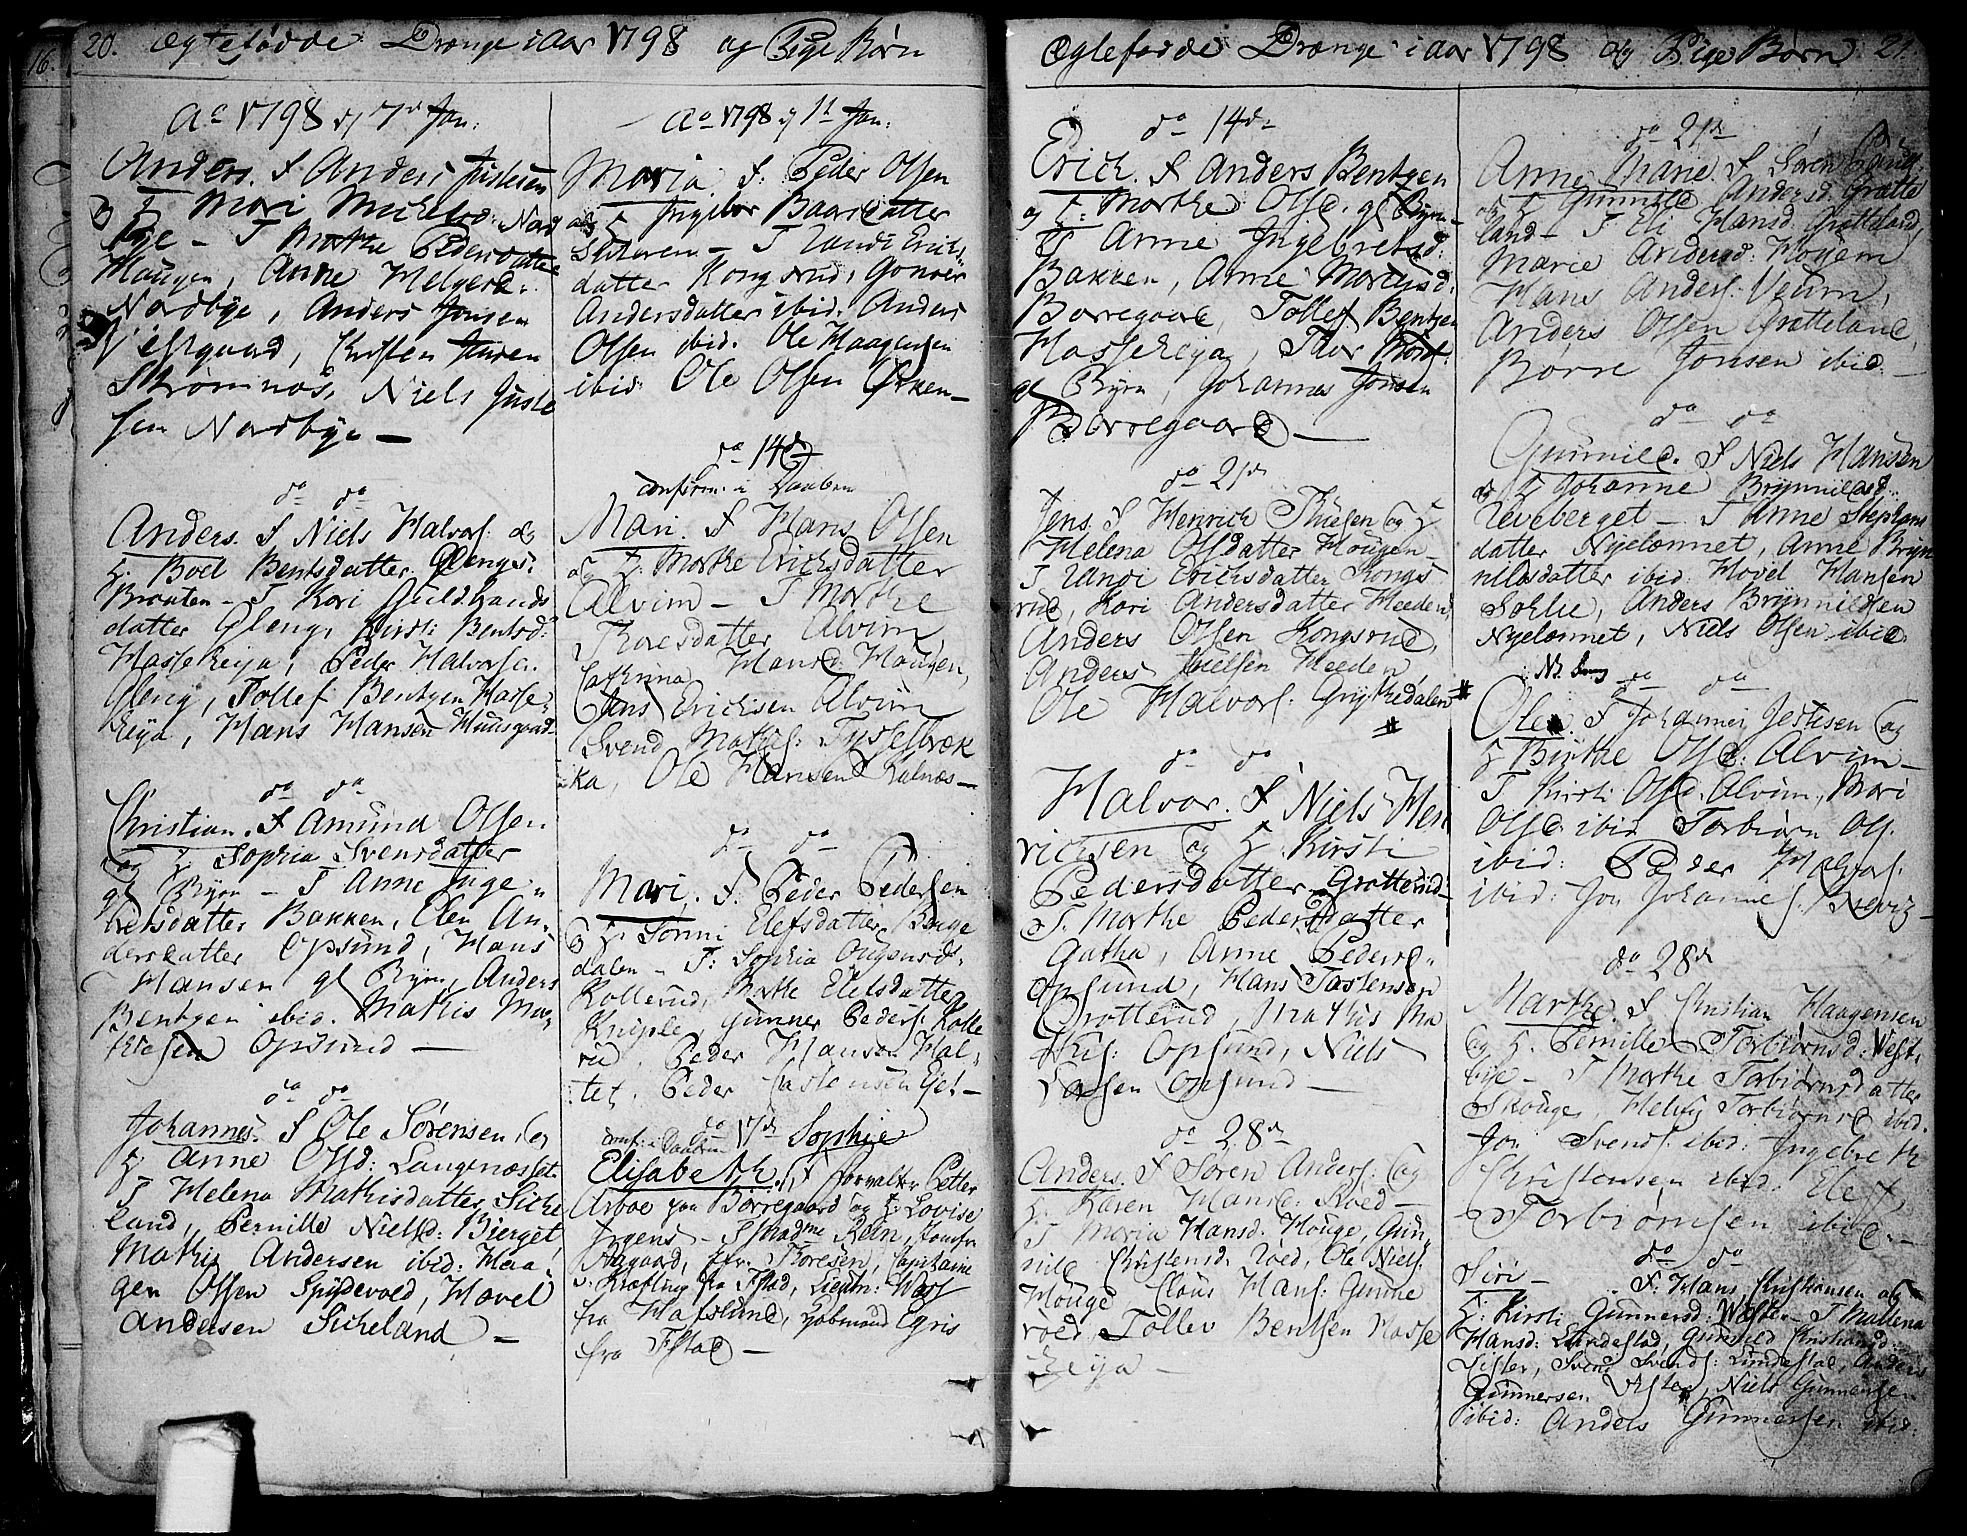 16.
20. Ægtefødde Drænge i Aar 1798 og Pige Børn
Ao 1798 d 7de Jan:
Anders. F Anders Justesen
og H Mari Michelsd: Nord
bye - T Marthe Pedersdatter
Haugen, Anne Helgesd:
Nordbye, Anders Jonsen
Visgaard, Christen Jursen
Strømnæs, Niels Juste
sen Nordbye -
do do
Anders. F Niels Halvors: og
H. Boel Bentsdatter Glengs:
Brauten - T Kari Guldbrands
datter Gleng, Kirsti Bentsd:
Hassekeya, Peder Halvorsen
Gleng, Tollef Bentzen Hasse-
keya, Hans Hansen Huusgaard
do do
Christian. F Amund Olsen
og H Sophia Svensdatter
gl Byrn - T Anne Inge-
bretsdatter Bakken, Elen An-
dersdatter Opsund, Hans
Hansen gl Byrn, Anders
Bentzen ibid. Mathis Mat-
hiesen Opsund -
do do
Johannes. F Ole Sørensen, og
H. Anne Olsd: Langenæsset
T Helena Mathisdatter Sicke
land, Pernille Nielsd: Bierget
Mathis Andersen ibid: Haa-
gen Olsen Spydevold, Hovel
Andersen Sickeland -
Ao 1798 d 1te Jan:
Maria. F: Peder Olsen
og H Ingebor Baarsdatter
Slaaren - T Randi Erichs-
datter Kongsrud, Gonver
Andersdatter ibid. Anders
Olsen ibid. Ole Haagensen
ibid: Ole Olsen Ørken -
do 14de
confirm: i Daaben
Mari. F Hans Olsen
og H: Marthe Ericksdatter
Alvim - T Marthe
Thoresdatter Alvim,
Cathrina Hansd: Haugen,
Jens Ericksen Alvim
Svend Mathis: Tyslesbæk
ka, Ole Hansen Kalnæs -
do do
Mari. F. Peder Pedersen
og H. Sønni Elefsdatter Borge
dalen - T: Sophia Ougensd:
Kollerud, Marthe Elefsdatter
Kniple, Gunner Peders: Kolle
rud, Peder Hansen Hal-
tet, Peder Castensen Eje -
do 17de
conf: i Daaben Sophie
Elisabeth. F forvalter Petter
Arboe paa Borregaard og H: Lovise
Irgens - T Madme Rein, Jomfr
Aagaard, Fr: Thoresen, Capitaine
v: Krafting fra Istad, Lieutn: Wass
fra Hafslund, Kiøbmand Egris
fra Fstad -
Ægtefødde Drænge i Aar 1798 og Pige Børn 21.
do 14de
Erich. F Anders Bentzen
og H: Marthe Olsd. gl Byrn -
T Anne Ingebretsd:
Bakken, Anne Mortensd.
Borregaard, Tollef Bentzen
Hassekeya, Thor Thors:
gl Byrn, Johannes Jonsen
Borregaard -
do 21de
Jens. F Henrich Thuesen og H
Helena Olsdatter Hougen -
T Randi Ericksdatter Kongs
rud, Kari Andersdatter Heeden,
Anders Olsen Kongsrud,
Anders Juelsen Heeden
Ole Halvors: Grythedalen #
#
do do
Halvor. F Niels Hen
richsen og H. Kirsti
Pedersdatter Grotterud -
T. Marthe Pedersdatter
Gatha, Anne Pedersd:
Opsund, Hans Tostensen
Grotterud, Mathis Ma
this: Opsund, Niels
Larsen Opsund -
do 28de
Anders. F Søren Anders: og
H. Karen Hansd: Roed -
T Maria Hansd. Houge, Gun-
nild Christensd. Roed, Ole Niels:
Houge Claus Hans: Gunne
roed Tollev Bentsen Hasse
keya -
do 21de
Anne Marie. F Søren
og H Gunnild Andersd. Grætte
land - T Eli Hansd. Grætteland,
Marie Andersd: Houem
Hans Anders: Veum,
Anders Olsen Grætteland,
Børre Jonsen ibid. -
do do
Gunnild. F Niels Hansen
og H Johanne Brynnildsd:
Reveberget - T Anne Stephens
datter Nyelænnet, Anne Bryn
nildsdatter ibid: Hovel Hansen
Solie, Anders Brynnildsen
Nyelænnet, Niels Olsen ibid
do do
Olea. F Johannes Jensen og
H Birthe Olsd: Alvim -
T Kirsti Olsd. Alvim, Mari
Olsd: ibid Torbiørn Ols.
ibid: Peder Halvors.
ibid: Jon Johannes: -
do 28de
Marthe. F Christian Haagensen
og H. Pernille Torbiørnsd: Vest-
bye - T Marthe Torbiørnsdatter
Skouge, Helvig Torbiørnsd ibid.
Jon Svends: ibid: Ingebreth
Christensen ibid: Elef
Torbiørnsen ibid. -
do do
Siri - F: Hans Christiansen og
H: Kirsti Gunnersd: Wister - T Mallena
Hansd: Lundestad, Gunnild Christiansd:
Vister, Svend Svends: Lundestad, Anders
Gunnersen Vister, Niels Gunnersen
ibid: Anders Gunnersen ibid: